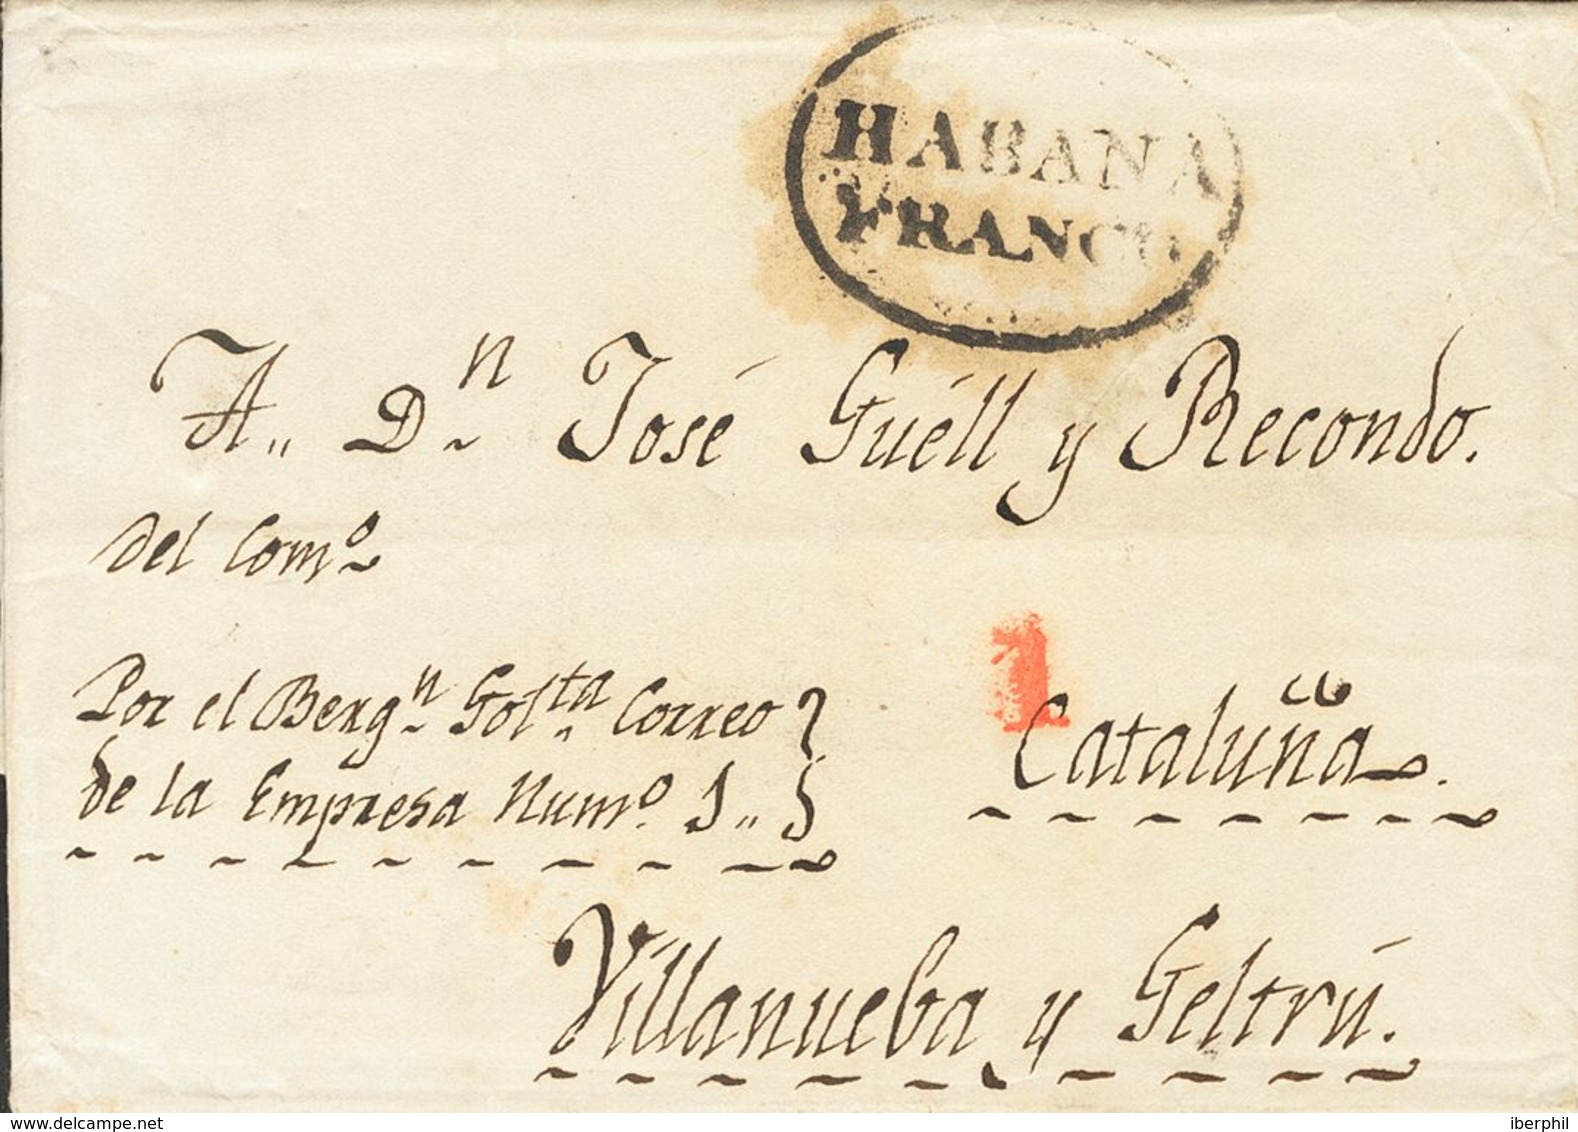 HABANA
FRANCO
A„ Dn José Güell y Recondo.
del Como
Por el Bergn Golta Correo
de la Empresa Numo. 1„
1
Cataluña.
Villanueba y Geltrú.
www.delcampe.net
iberphil